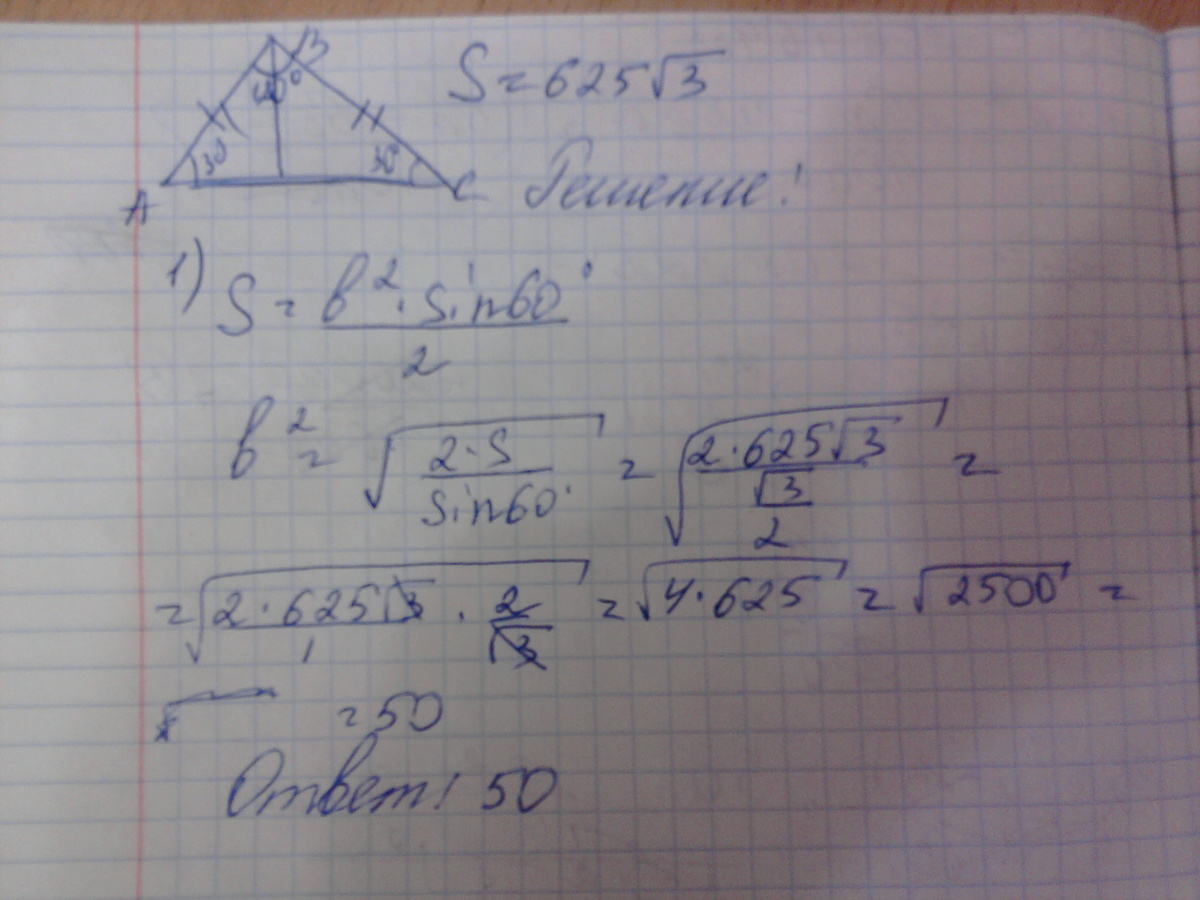 B
S = 625√3
30°
30°
A
C
Решение:
1) S = b² · sin60° / 2
b² = √(2·S / sin60°) = √(2·625√3 / (√3/2)) =
= √(2·625√3 / 1 · 2/√3) = √(4·625) = √2500 =
= 50
Ответ: 50